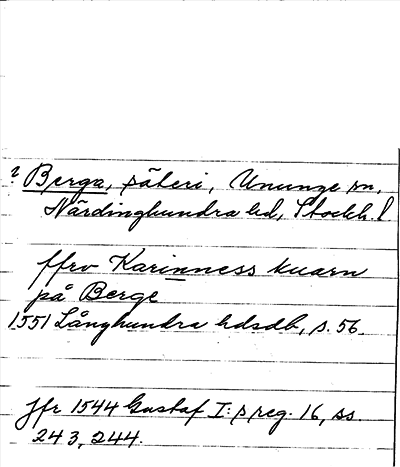 ? Berga, säteri, Ununge sn,
Närdinghundra hd, Stockh. l
ffrv Karinness kuarn
på Berge
1551 Långhundra hdsdb, s. 56.
Jfr 1544 Gustaf I:s reg. 16, ss.
243, 244.